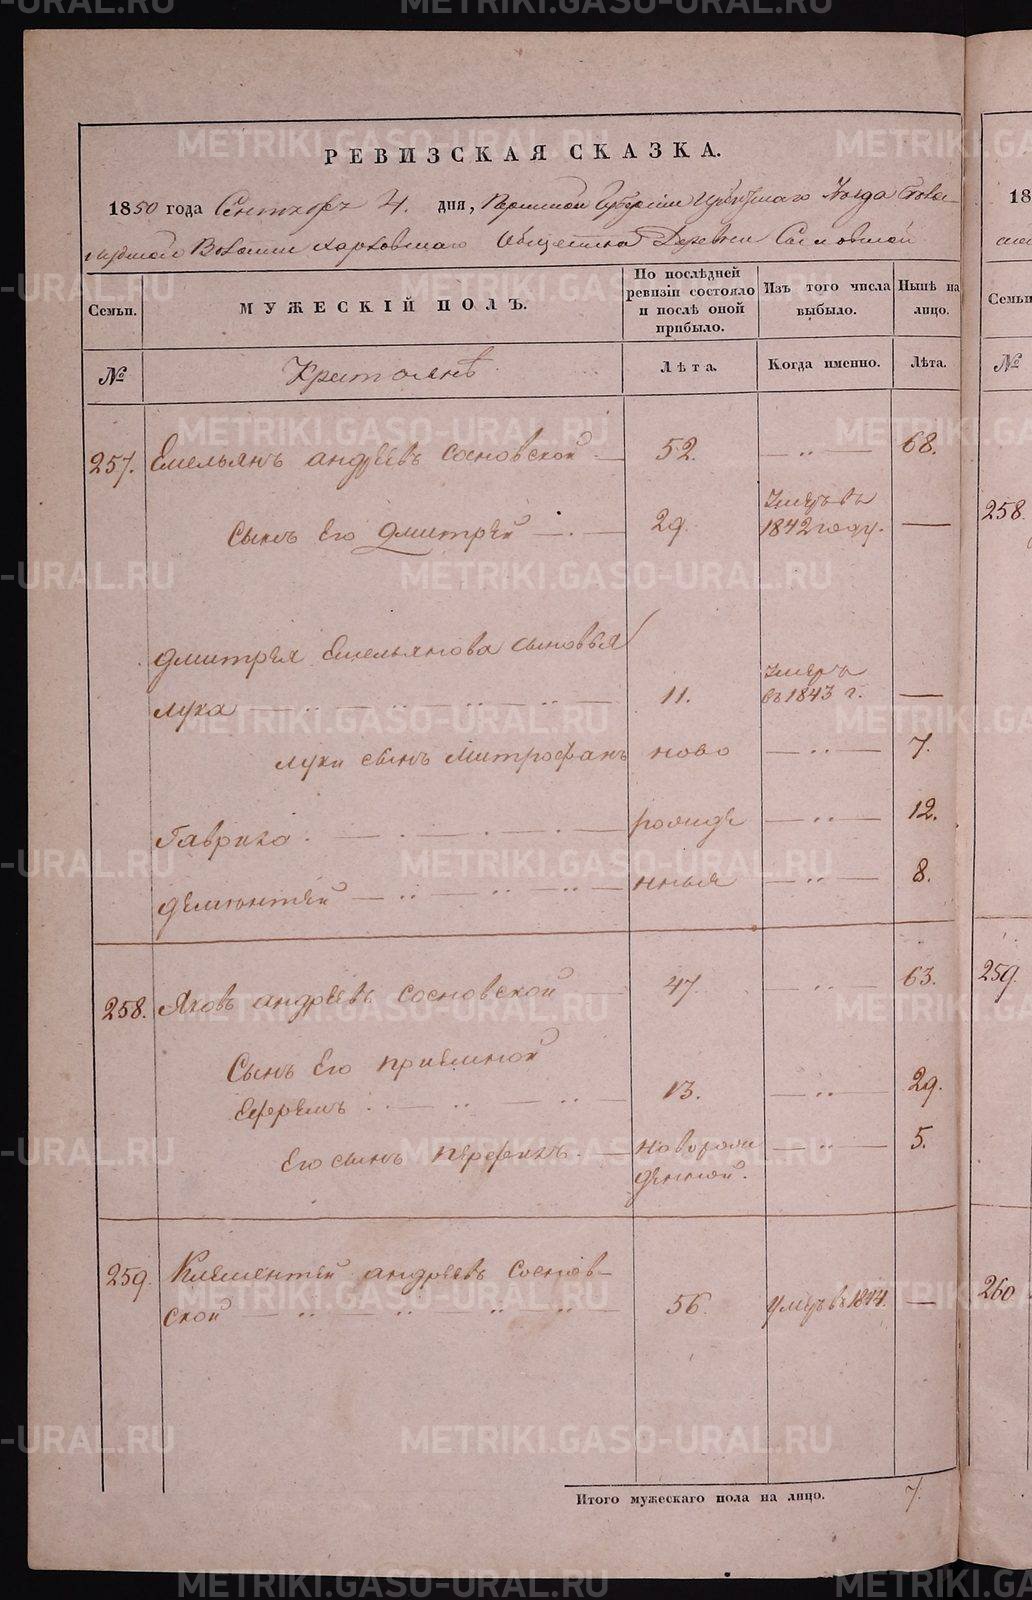 РЕВИЗСКАЯ СКАЗКА.
1850 года Сентября 4. дня, Пермской Губернии Ирбитскаго Уезда
Волости Харловскаго Общества Деревни
Семьи.
МУЖЕСКІЙ ПОЛЪ.
По послѣдней ревизіи состояло и послѣ оной прибыло.
Изъ того числа выбыло.
Нынѣ на лицо.
№
Крестьянѣ
Лѣта.
Когда именно.
Лѣта.
257. Емельянъ андреевъ сосновской 52. 68.
сынъ его дмитрей 29. Умеръ въ 1842 году.
дмитрея Емельянова сыновья
лука 11. Умеръ въ 1843 г.
луки сынъ митрофанъ ново 7.
Гаврило рожде 12.
дементей нныя 8.
258. Яковъ андреевъ сосновской 47. 63.
Сынъ его приемной
Ефремъ 13. 29.
его сынъ перфилъ новорож 5.
денной.
259. Клементей андреевъ соснов-
ской 56. умеръ въ 1844.
Итого мужескаго пола на лицо. 7.
18
Семьи
№
258
259.
260
METRIKI.GASO-URAL.RU